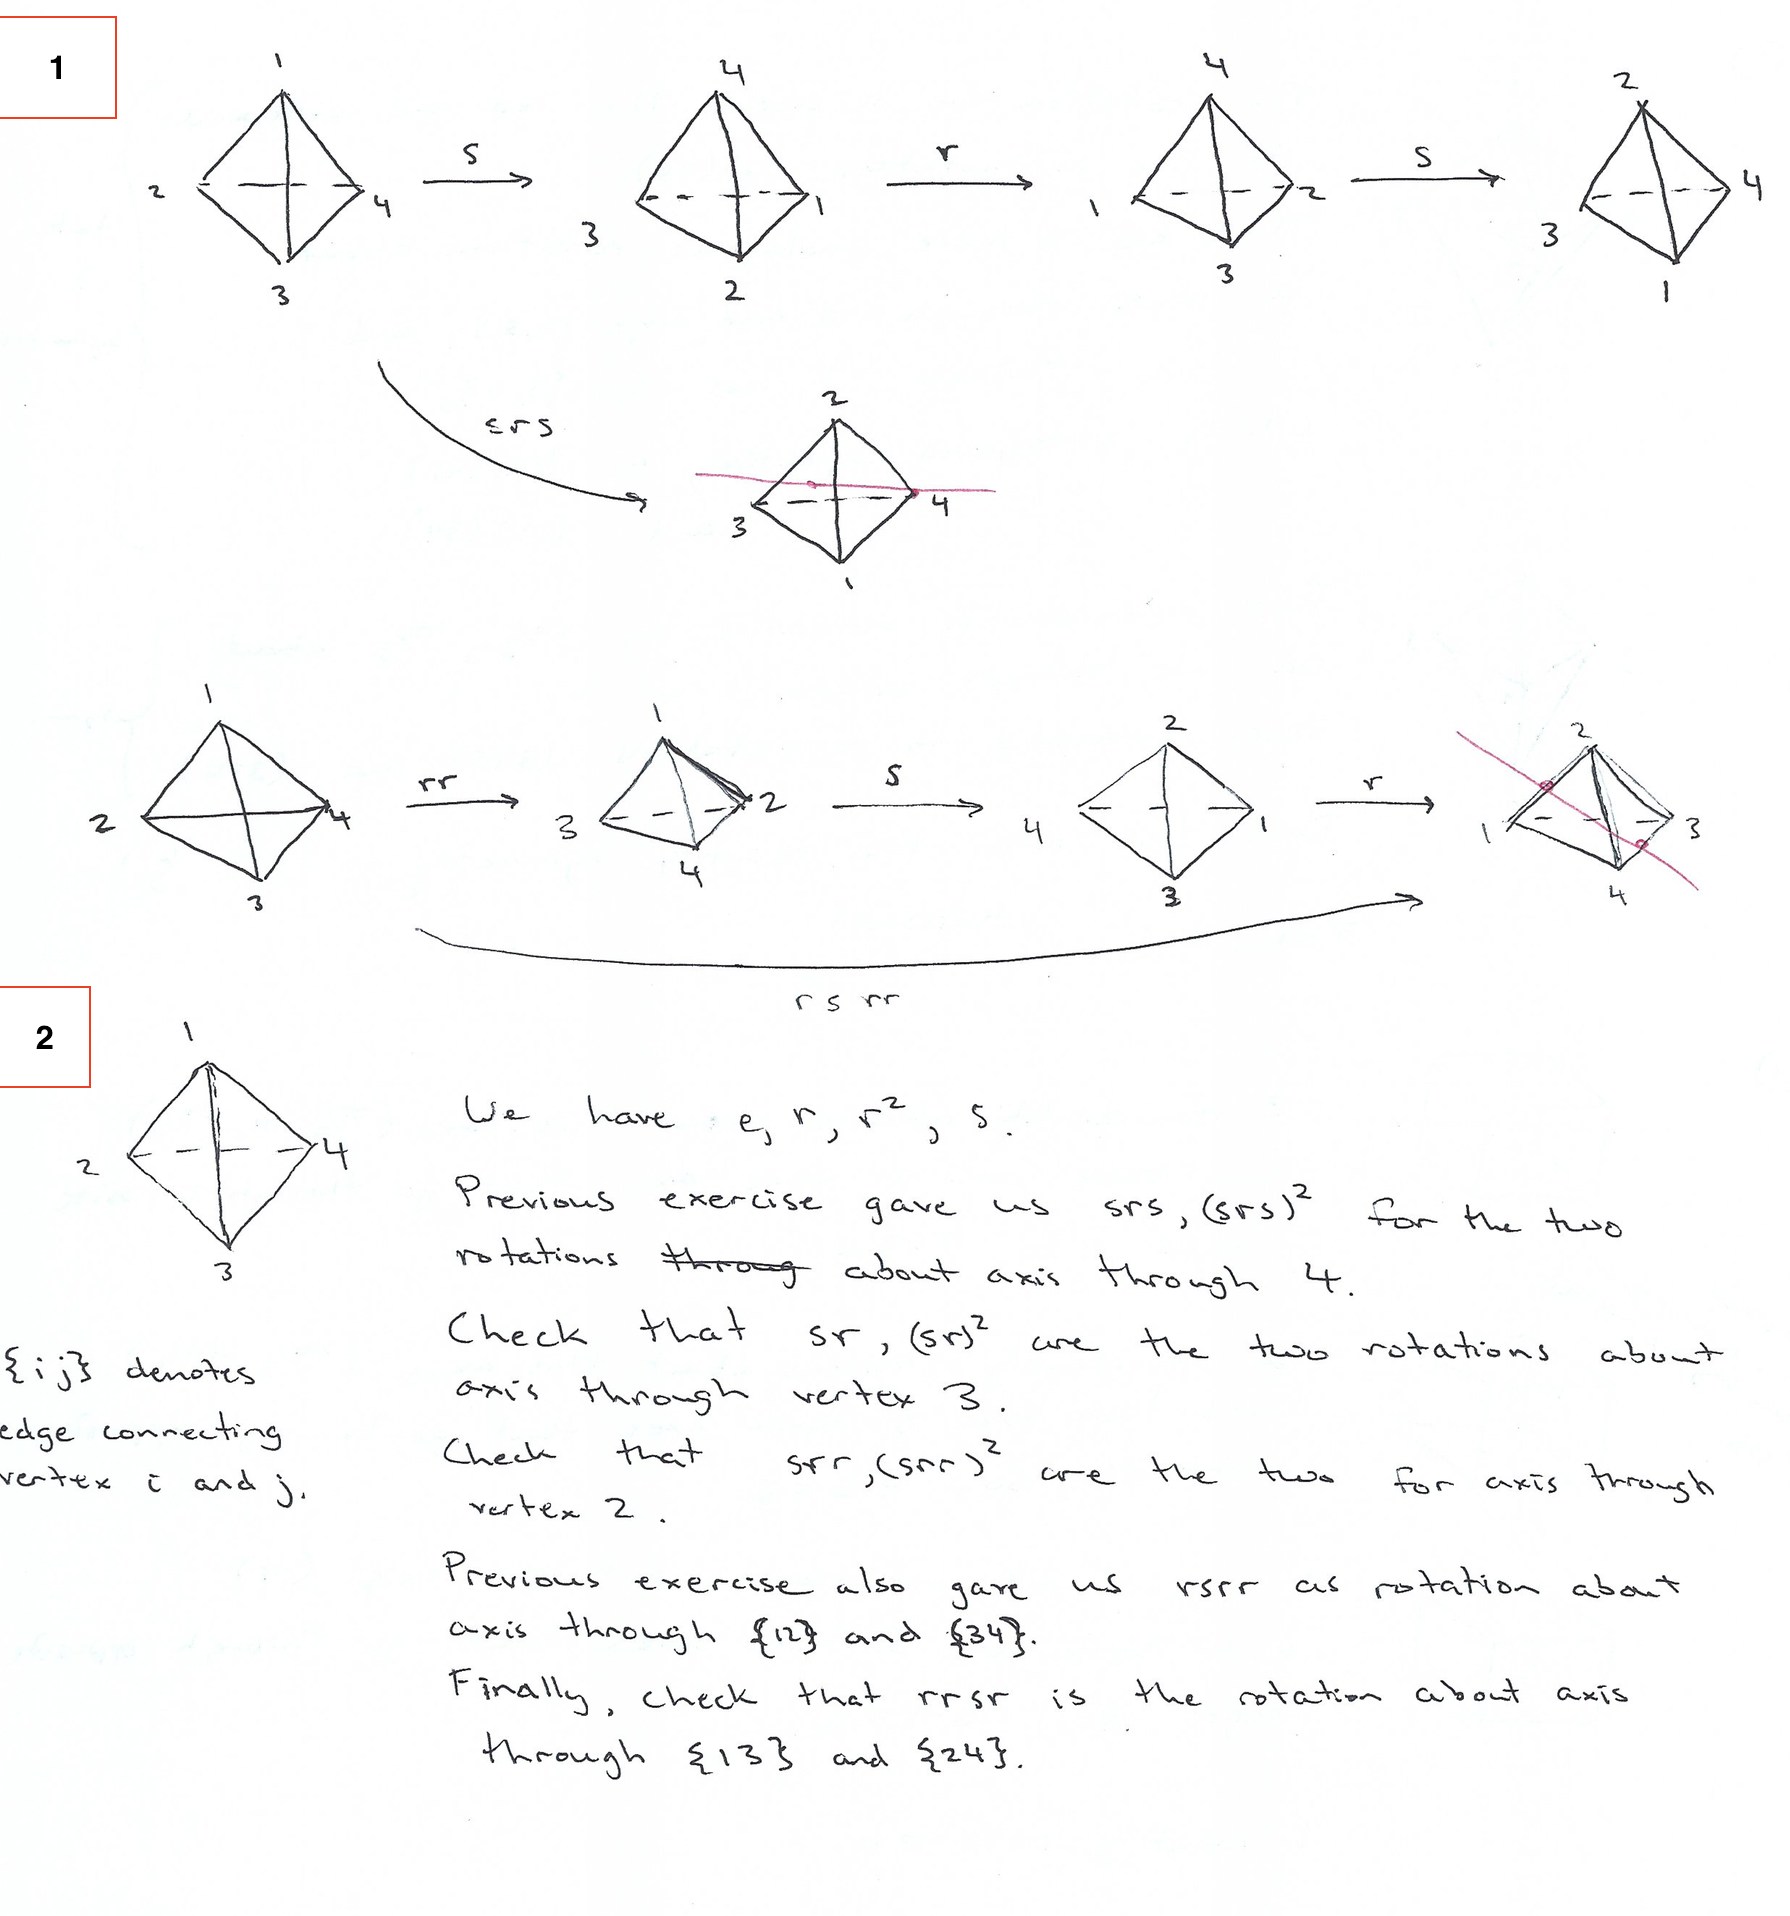 1
1 4 4 2
s r s
2 4 3 1 1 2 3 4
3 2 3 1
srs
2
3 4
1
1 1 2 2
rr s r
2 4 3 2 4 1 1 3
3 4 3 4
r s rr
2
1
2 4
3
{ij} denotes
edge connecting
vertex i and j.
We have e, r, r², s.
Previous exercise gave us srs, (srs)² for the two
rotations throug about axis through 4.
Check that sr, (sr)² are the two rotations about
axis through vertex 3.
Check that srr, (srr)² are the two for axis through
vertex 2.
Previous exercise also gave us rsrr as rotation about
axis through {12} and {34}.
Finally, check that rrsr is the rotation about axis
through {13} and {24}.